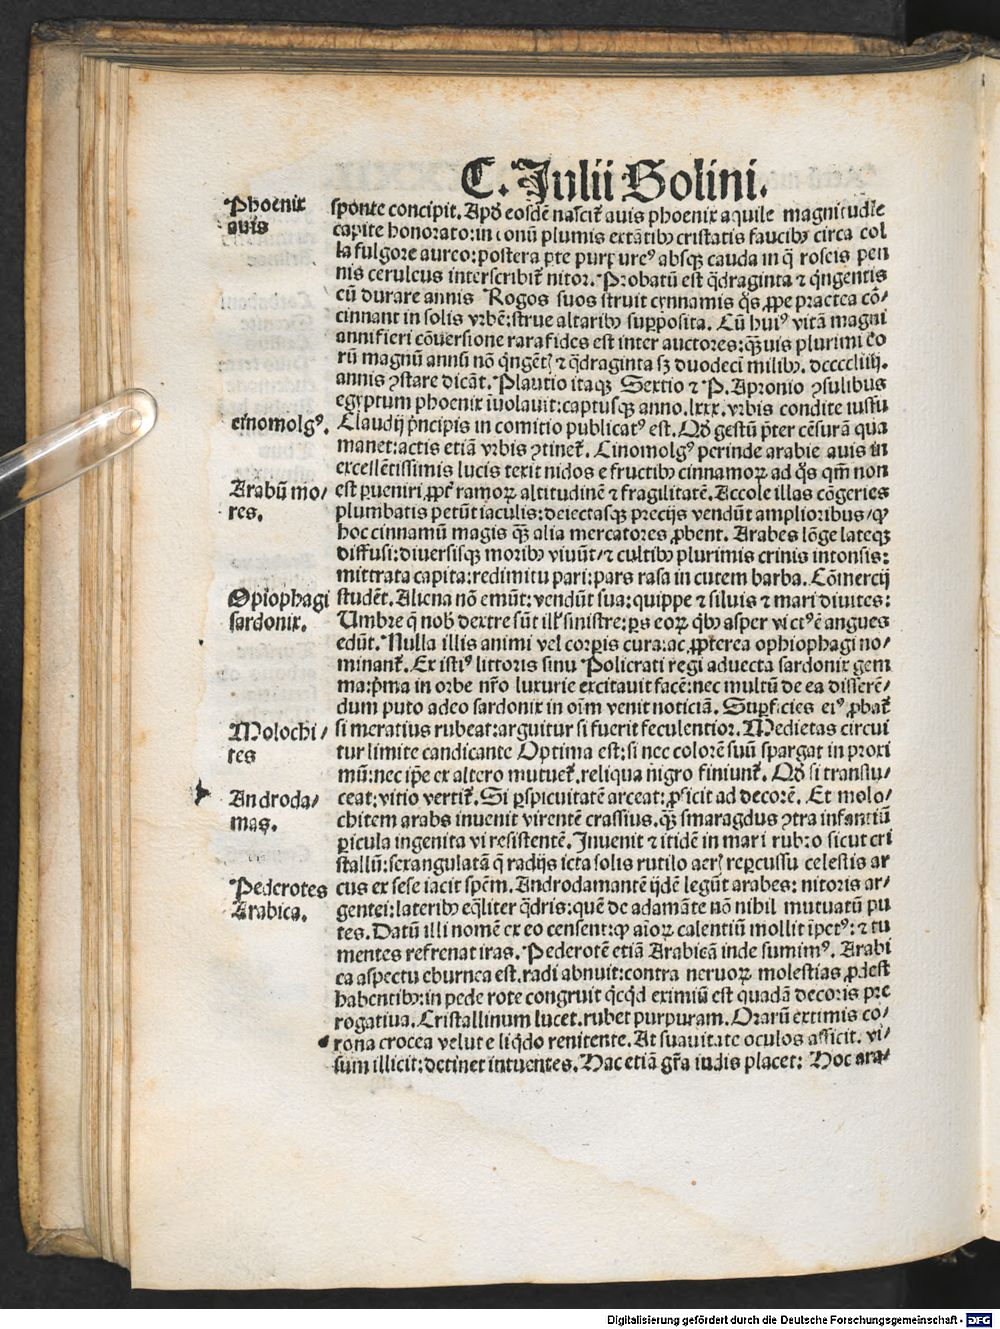 C. Julii Solini.
Phoenix
auis
sponte concipit. Apđ eosdē nascit̃ auis phoenix aquile magnitudīe
capite honorato: in conū plumis extātibꝫ cristatis faucibꝫ circa col
la fulgore aureo: postera ꝑte purpureꝰ absqꝫ cauda in q̄ roseis pen
nis ceruleus interscribit̃ nitor. Probatū est q̄draginta ⁊ q̄ngentis
eū durare annis Rogos suos struit cynnamis q̄s ꝓpe panchea cō⸗
cinnant in solis vrbē: strue altaribꝫ supposita. Cū huiꝰ vitā magni
anni fieri cōuersione rara fides est inter auctores: q̄ꝫuis plurimi eo
rū magnū annū nō q̄ngēt⁊ ⁊ q̄draginta sꝫ duodeci milibꝫ. dccccliiij.
annis ꝯstare dicāt. Plautio itaqꝫ Sextio ⁊ P. Apronio ꝯsulibus
egyptum phoenix īuolauit: captusqꝫ anno. lxxx. vrbis condite iussu
cinomolgꝰ.
Claudij p̄ncipis in comitio publicatꝰ est. Qđ gestū p̄ter cēsurā qua
manet: actis etiā vrbis ꝯtinet̃. Cinomolgꝰ perinde arabie auis in
excellētissimis lucis texit nidos e fructibꝫ cinnamoꝝ ad q̄s qm̄ non
Arabū mo⸗
res.
est ꝑueniri ꝓpt̃ ramoꝝ altitudinē ⁊ fragilitatē. Accole illas cōgeries
plumbatis petūt iaculis: deiectasqꝫ precijs vendūt amplioribus/ ꝙ
hoc cinnamū magis q̄ꝫ alia mercatores ꝓbent. Arabes lōge lateqꝫ
diffusi: diuersisqꝫ moribꝫ viuūt/ ⁊ cultibꝫ plurimis crinis intonsis:
mitrata capita: redimitu pari: pars rasa in cutem barba. Cōmercij
Opiophagi
sardonix.
studēt. Aliena nō emūt: vendūt sua: quippe ⁊ siluis ⁊ mari diuites:
Umbre q̄ nob̄ dextre sūt ill̓ sinistre: ꝑs eoꝝ q̄bꝫ asper victꝰ ē angues
edūt. Nulla illis animi vel corꝑis cura: ac ꝓpterea ophiophagi no⸗
minant̃. Ex istiꝰ littoris sinu Policrati regi aduecta sardonix gem
ma: p̄ma in orbe nr̄o luxurie excitauit facē: nec multū de ea disserē⸗
dum puto adeo sardonix in oīm venit noticiā. Suꝑficies eiꝰ ꝓbat̃
Molochi⸗
tes
si meratius rubeat: arguitur si fuerit feculentior. Medietas circui
tur limite candicante Optima est: si nec colorē suū spargat in proxi
mū: nec ip̄e ex altero mutuet̃. reliqua nigro finiunt̃. Qđ si translu⸗
Androda⸗
mas.
ceat: vitio vertit̃. Si ꝑspicuitatē arceat: ꝓficit ad decorē. Et molo⸗
chitem arabs inuenit virentē crassius. q̄ꝫ smaragdus ꝯtra infantiū
ꝑicula ingenita vi resistentē. Inuenit ⁊ itidē in mari rubro sicut cri
stallū: sexangulatā q̄ radijs icta solis rutilo aer̄ reꝑcussu celestis ar
Pederotes
Arabica.
cus ex sese iacit spēm. Androdamantē ijdē legūt arabes: nitoris ar⸗
gentei: lateribꝫ eq̄liter q̄dris: quē de adamāte nō nihil mutuatū pu
tes. Datū illi nomē ex eo censent: ꝙ aīoꝝ calentiū mollit īpetꝰ: ⁊ tu
mentes refrenat iras. Pederotē etiā Arabicā inde sumimꝰ. Arabi
ca aspectu eburnea est. radi abnuit: contra neruoꝝ molestias ꝓdest
habentibꝫ: in pede rote congruit q̄cq̄d eximiū est quadā decoris pre
rogatiua. Cristallinum lucet. rubet purpuram. Orarū extimis co⸗
rona crocea velut e liq̄do renitente. At suauitate oculos afficit. vi⸗
sum illicit: detinet intuentes. Hac etiā gr̄a iudis placet: Hoc ara⸗
Digitalisierung gefördert durch die Deutsche Forschungsgemeinschaft - DFG